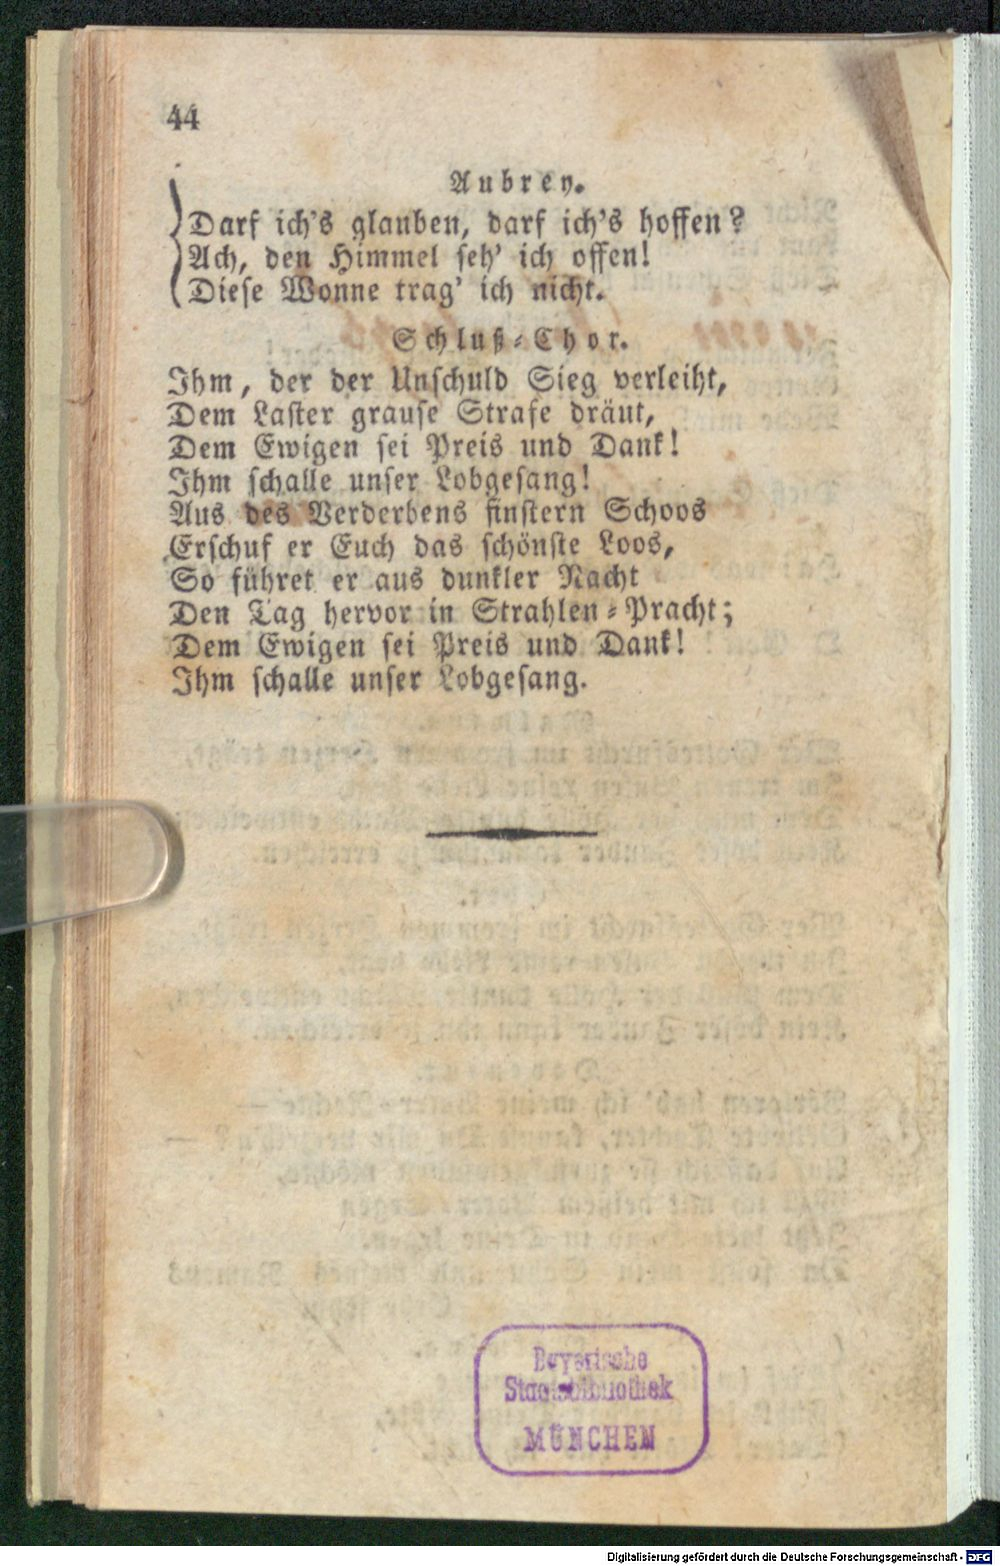 44
Aubrey.
Darf ich's glauben, darf ich's hoffen?
Ach, den Himmel seh' ich offen!
Diese Wonne trag' ich nicht.
Schluß-Chor.
Ihm, der der Unschuld Sieg verleiht,
Dem Laster grause Strafe dräut,
Dem Ewigen sei Preis und Dank!
Ihm schalle unser Lobgesang!
Aus des Verderbens finstern Schoos
Erschuf er Euch das schönste Loos,
So führet er aus dunkler Nacht
Den Tag hervor in Strahlen-Pracht;
Dem Ewigen sei Preis und Dank!
Ihm schalle unser Lobgesang.
Bayerische
Staatsbibliothek
MÜNCHEN
Digitalisierung gefördert durch die Deutsche Forschungsgemeinschaft - DFG